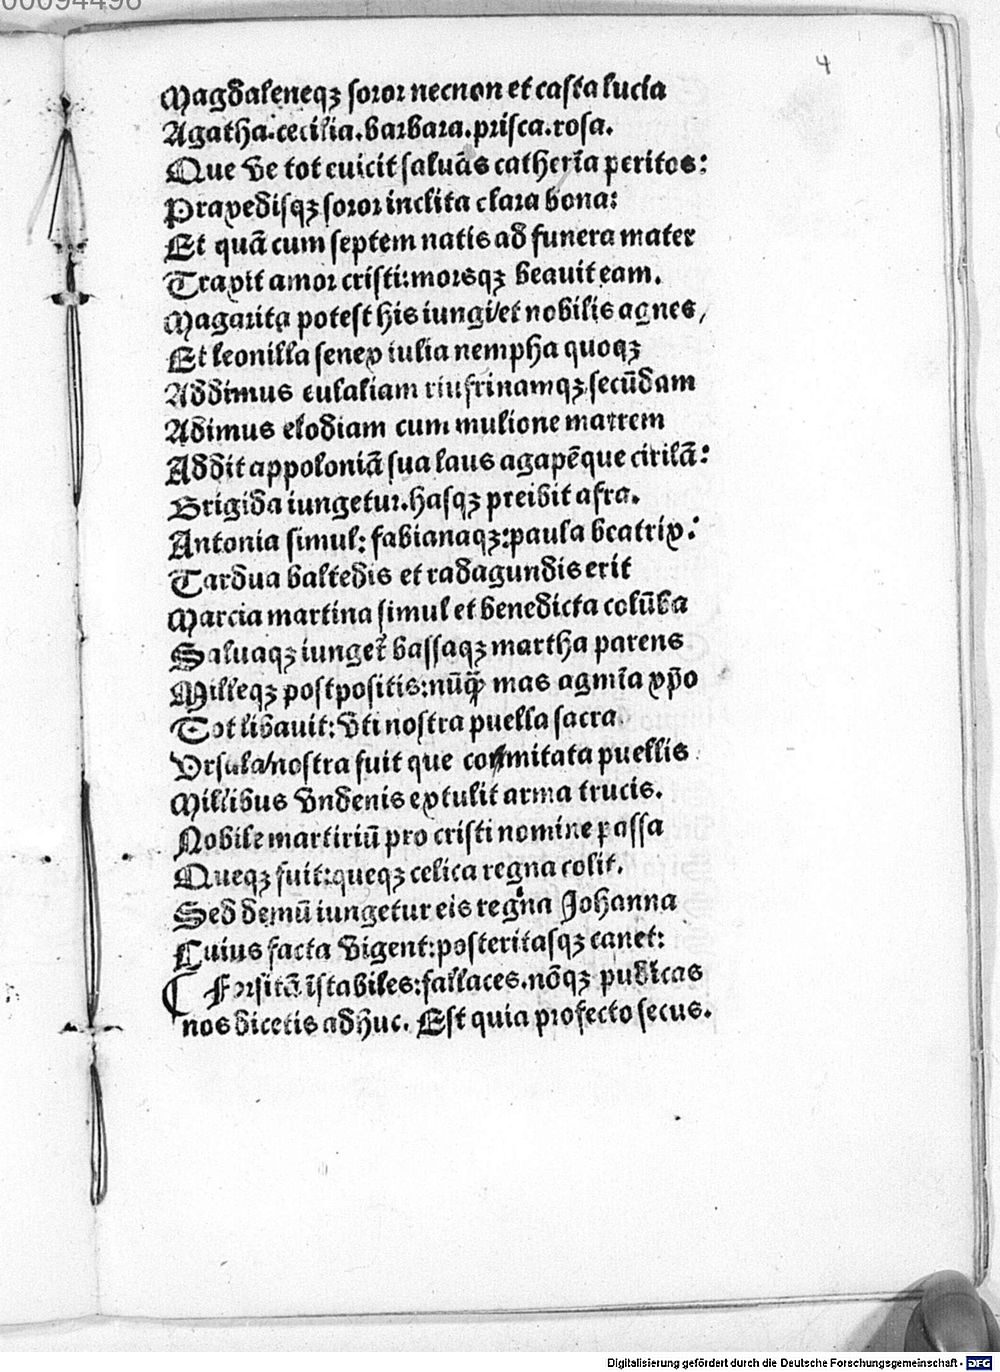 00094496
4
Magdaleneqꝫ soror necnon et casta lucia
Agatha.cecilia.barbara.prisca.rosa.
Que ve tot euicit saluãs catherĩa peritos:
Praxedisqꝫ soror inclita clara bona:
Et quã cum septem natis ad funera mater
Traxit amor cristi:morsqꝫ beauit eam.
Magarita potest his iungi/et nobilis agnes/
Et leonilla senex iulia nempha quoqꝫ
Addimus eulaliam rufrinamqꝫ secũdam
Adimus elodiam cum mulione matrem
Addit appoloniã sua laus agapẽque cirilã:
Brigida iungetur.hasqꝫ preibit afra.
Antonia simul: fabianaqꝫ:paula beatrix:
Tardua baltedis et radagundis erit
Marcia martina simul et benedicta colũba
Saluaqꝫ iunget᷑ bassaqꝫ martha parens
Milleqꝫ postpositis:nũꝙ̃ mas agmĩa xp̃o
Tot libauit:vti nostra puella sacra.
Vrsula/nostra fuit que commitata puellis
Millibus vndenis extulit arma trucis.
Nobile martiriũ pro cristi nomine passa
Queqꝫ fuit:queqꝫ celica regna colit.
Sed demũ iungetur eis regna Johanna
Cuius facta vigent:posteritasqꝫ canet:
⸿ Forsitã ĩstabiles:fallaces.nõqꝫ pudicas
nos dicetis adhuc. Est quia profecto secus.
Digitalisierung gefördert durch die Deutsche Forschungsgemeinschaft - DFG